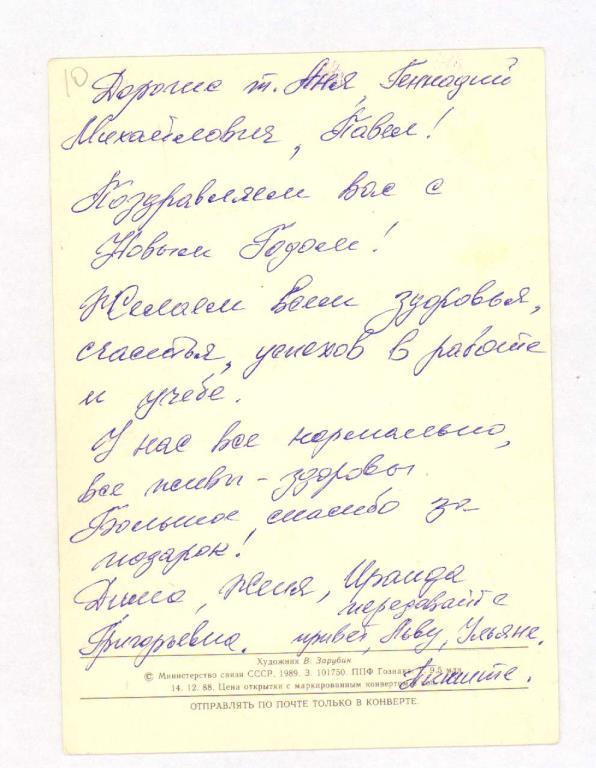 10
Дорогие т. Аня, Геннадий
Михайлович, Павел!
Поздравляем вас с
Новым Годом!
Желаем всем здоровья,
счастья, успехов в работе
и учебе.
У нас все нормально,
все живы-здоровы.
Большое спасибо за
подарок!
Дима, Женя, Ираида
Григорьевна.
передавайте
привет, Льву, Ульяне.
Пишите.
Художник В. Зарубин
© Министерство связи СССР, 1989. З. 101750. ППФ Гознака. 9,5 млн.
14. 12. 88. Цена открытки с маркированным конвертом
ОТПРАВЛЯТЬ ПО ПОЧТЕ ТОЛЬКО В КОНВЕРТЕ.